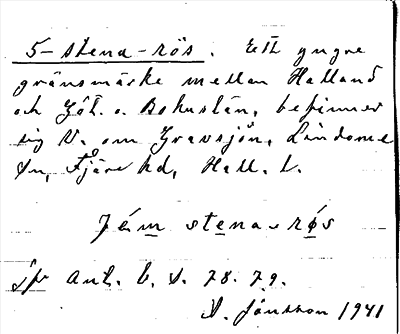 5-stena-rös. Ett yngre
gränsmärke mellan Halland
och Göt. o. Bohuslän, befinner
sig V. om Gravsjön, Lindome
sn, Fjäre hd, Hall. l.
fém stena-røs
jfr Ant. b. s. 78. 79.
A. Jönsson 1941